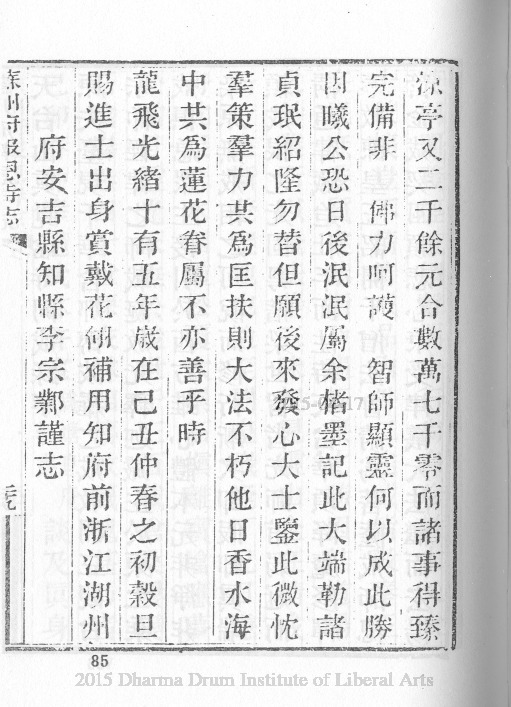 涼亭又二千餘元合數萬七千零而諸事得臻
完備非 佛力呵護 智師顯靈何以成此勝
因曦公恐日後泯泯屬余楮墨記此大端勒諸
貞珉紹隆勿替但願後來發心大士鑒此微忱
羣策羣力共為匡扶則大法不朽他日香水海
中共為蓮花眷屬不亦善乎時
龍飛光緒十有五年歲在己丑仲春之初穀旦
賜進士出身賞戴花翎補用知府前浙江湖州
府安吉縣知縣李宗鄴謹志
蘇州府報恩寺志
85
2015 Dharma Drum Institute of Liberal Arts